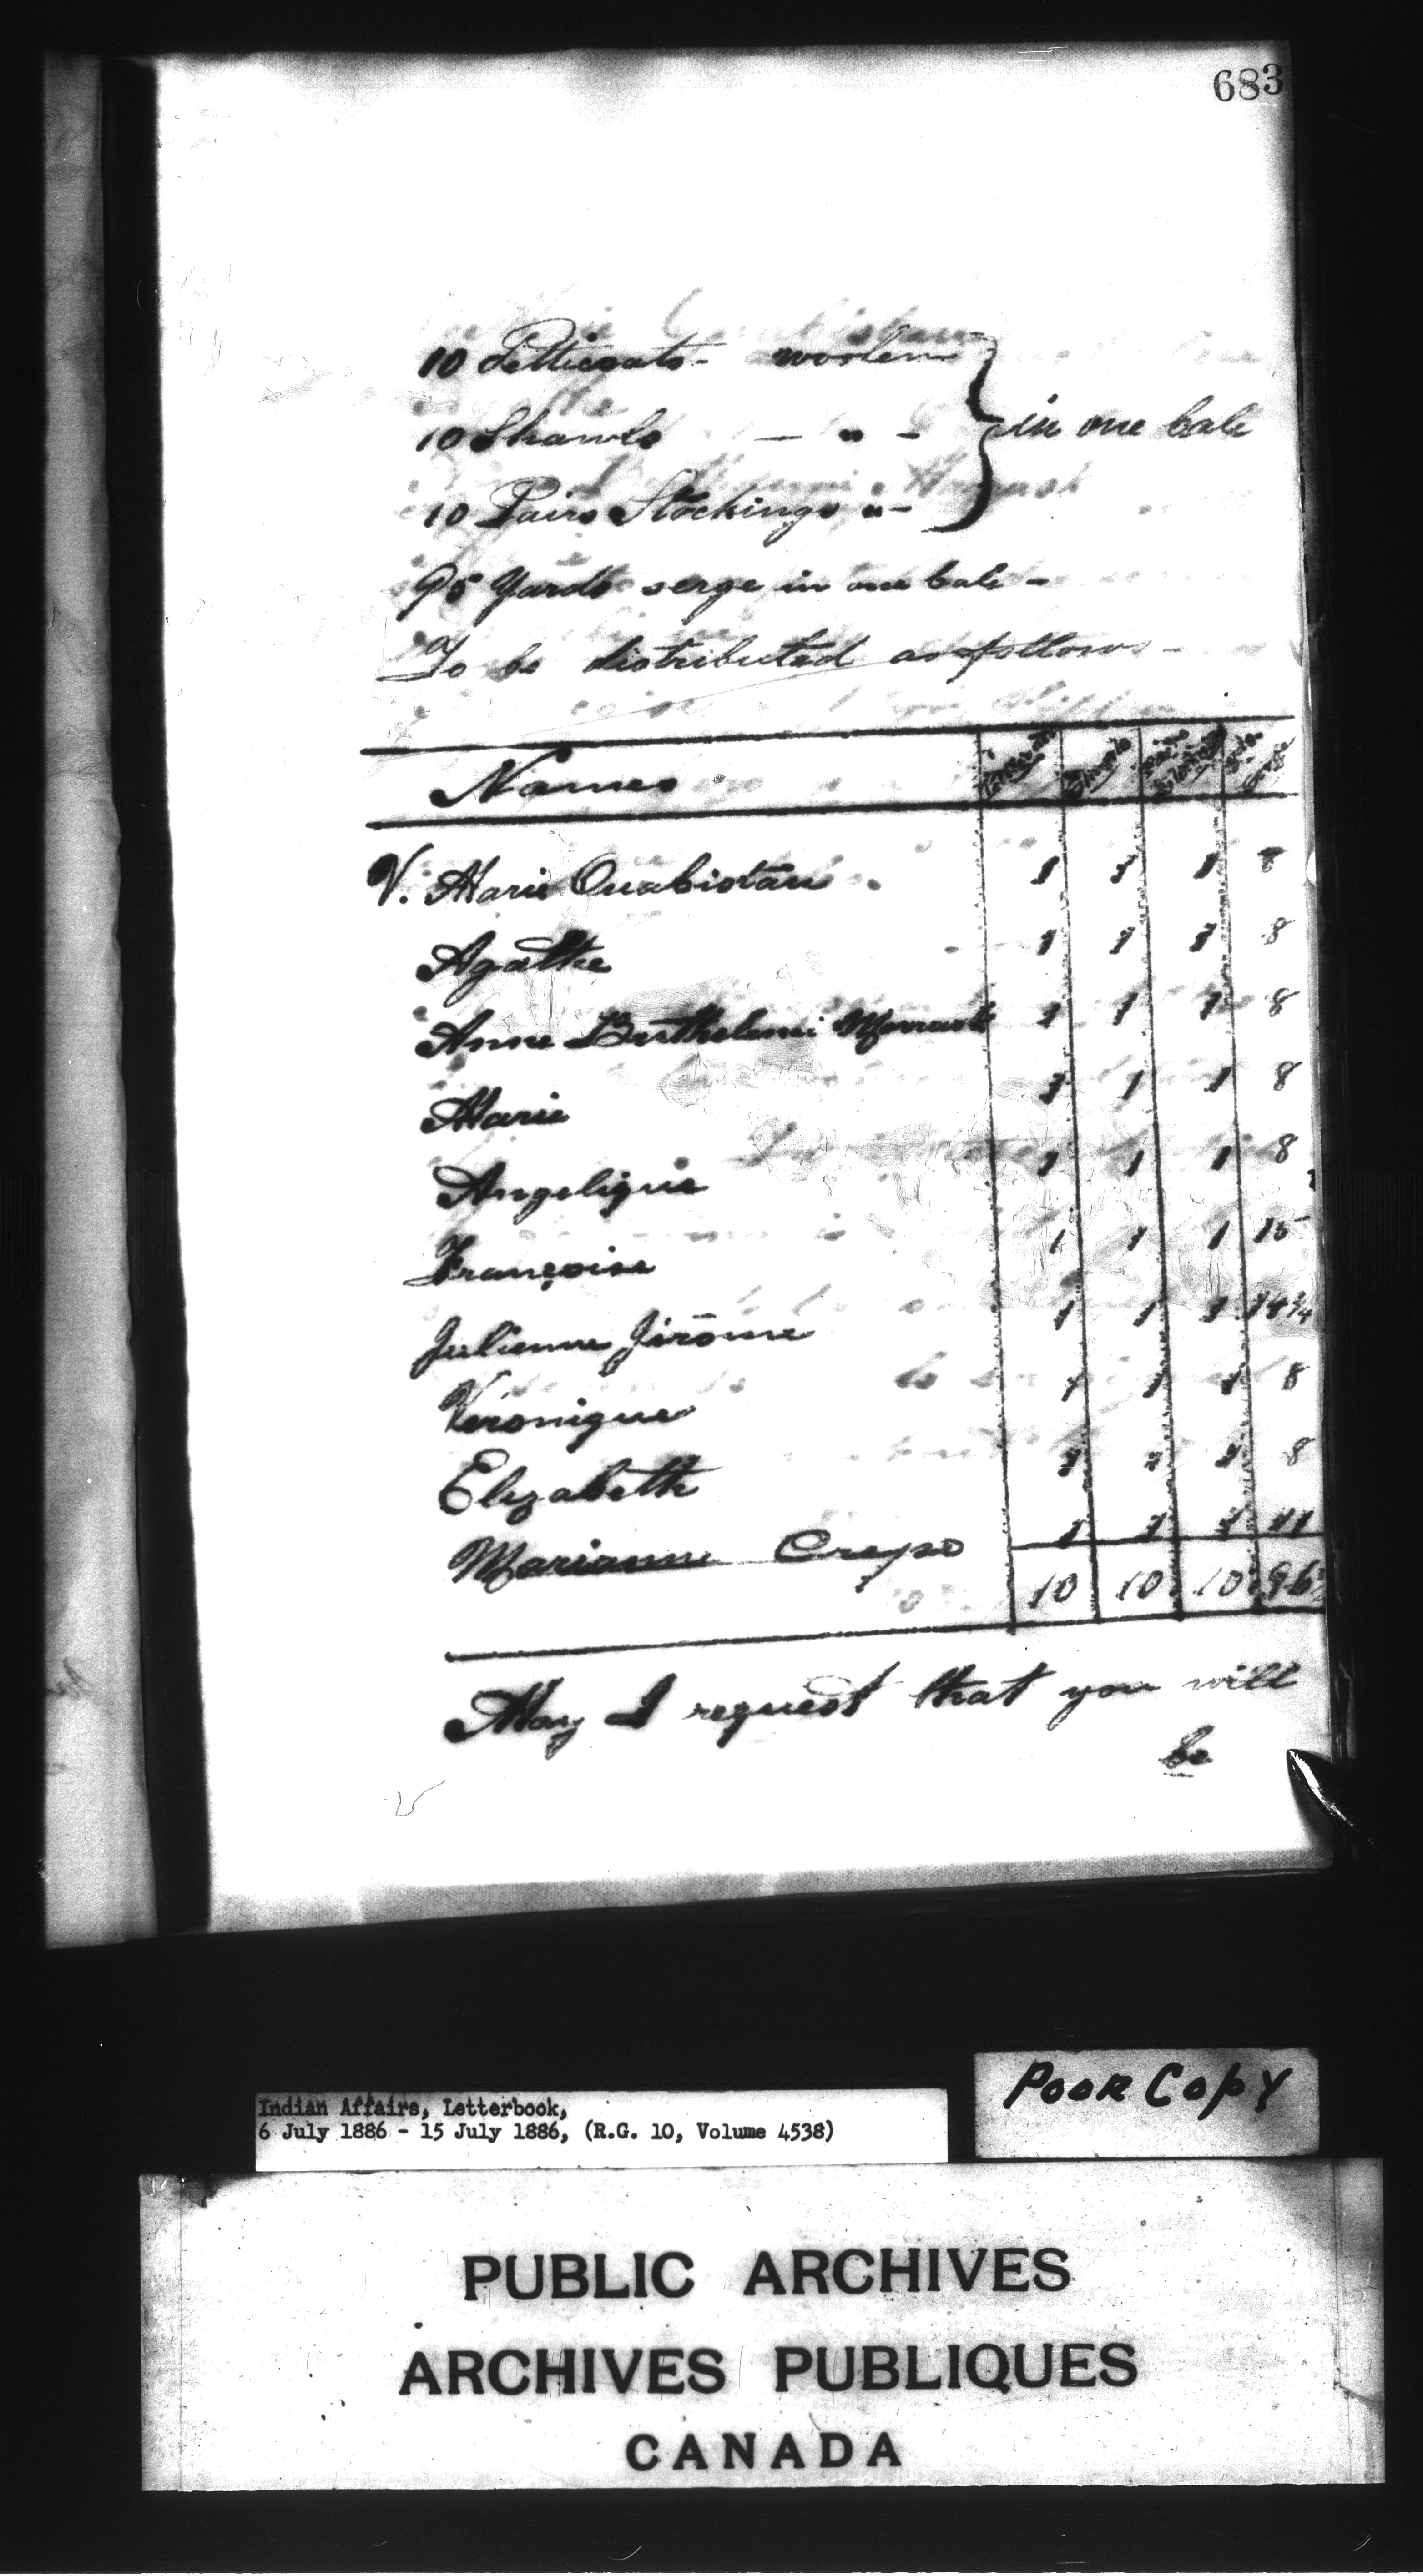 683
10 Petticoats - woolen
10 Shawls — " - in one bale
10 Pairs Stockings " -
95 Yards serge in one bale -
To be distributed as follows -
Names Petticoats Shawls Pairs Stockings Yds Serge
V. Marie Ouabistan 1 1 1 8
Agathe 1 1 1 8
Anne Barthelemi 1 1 1 8
Marie 1 1 1 8
Angelique 1 1 1 8
Françoise 1 1 1 15
Julienne Jirôme 1 1 1 14¾
Véronique 1 1 1 8
Elizabeth 1 1 1 8
Marianne Crepo 1 1 1 11
10 10 10
May I request that you will
be
Poor Copy
Indian Affairs, Letterbook,
6 July 1886 - 15 July 1886, (R.G. 10, Volume 4538)
PUBLIC ARCHIVES
ARCHIVES PUBLIQUES
CANADA